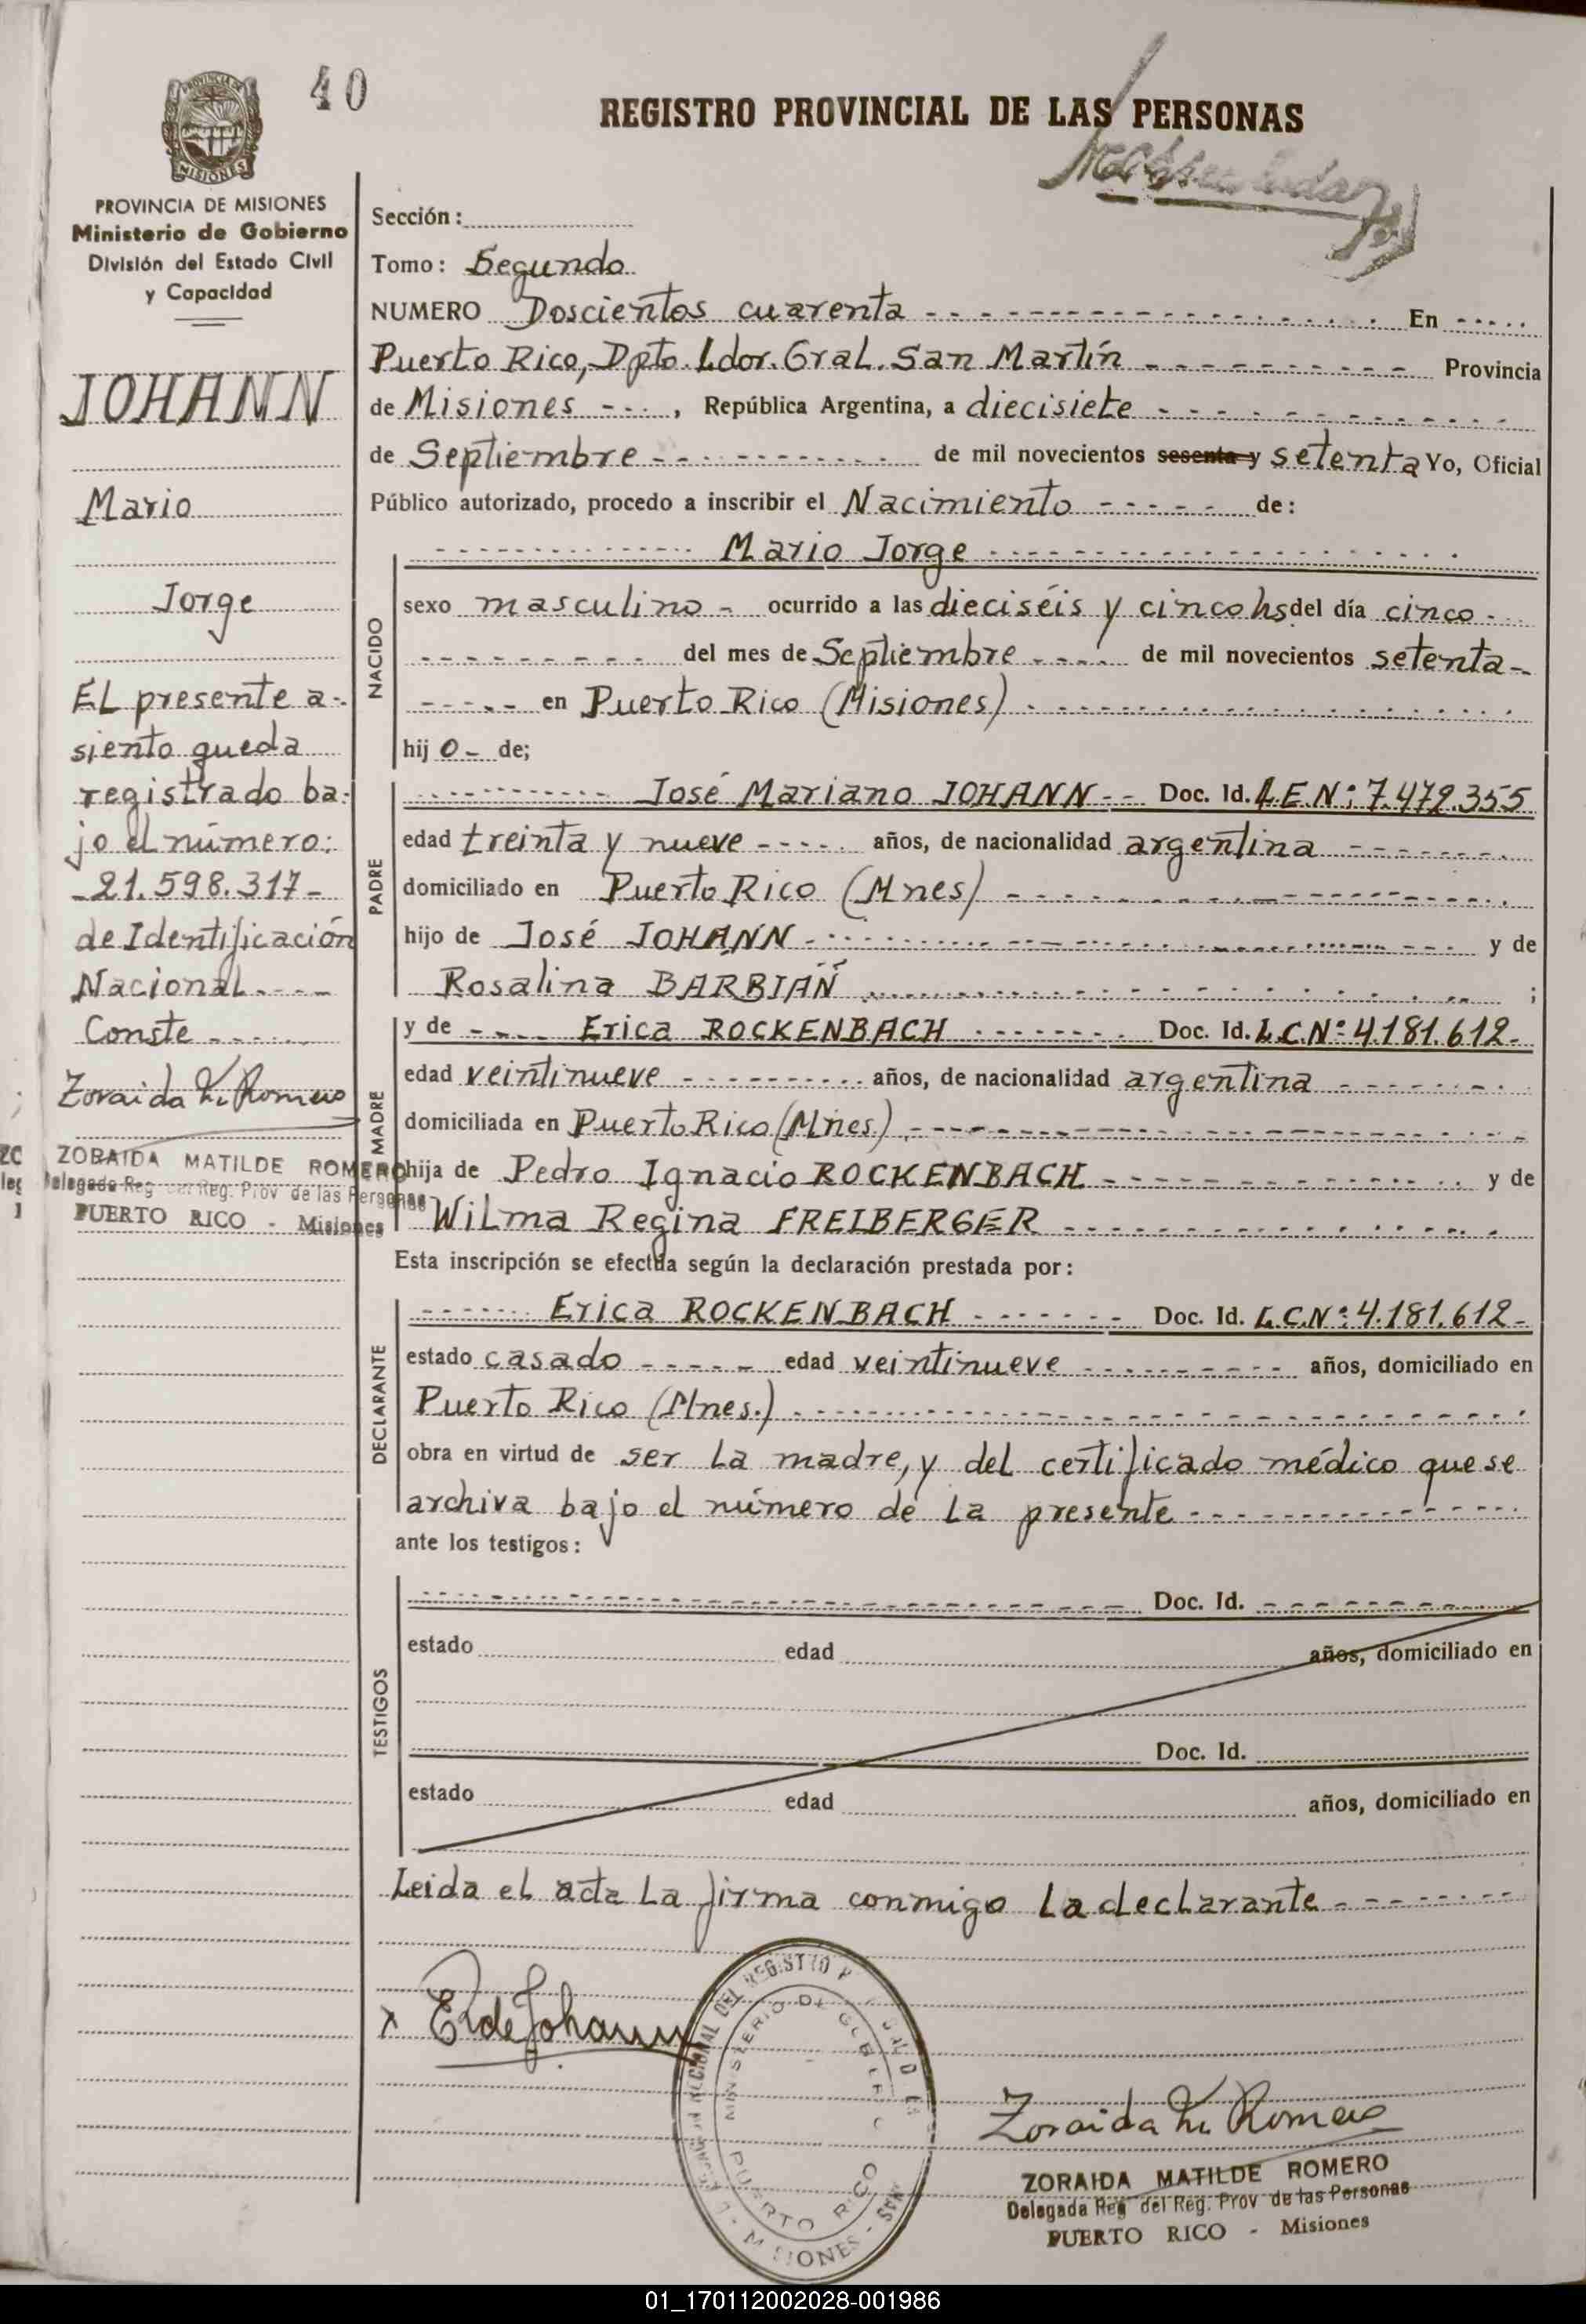 40
REGISTRO PROVINCIAL DE LAS PERSONAS
PROVINCIA DE MISIONES
Ministerio de Gobierno
División del Estado Civil
y Capacidad
JOHANN
Mario
Jorge
EL presente a-
siento queda
registrado ba-
jo el número:
-21.598.317-
de Identificación
Nacional----
Conste------
Zoraida M. Romero
ZORAIDA MATILDE ROMERO
Delegada Reg. del Reg. Prov de las Personas
PUERTO RICO - Misiones
Sección:
Tomo: Segundo
NUMERO Doscientos cuarenta ---- En ----
Puerto Rico, Dpto. Ldor. Gral. San Martín ---- Provincia
de Misiones ---, República Argentina, a diecisiete ----
de Septiembre ---- de mil novecientos sesenta y setenta Yo, Oficial
Público autorizado, procedo a inscribir el Nacimiento ---- de:
---- Mario Jorge ----
NACIDO
sexo masculino - ocurrido a las dieciséis y cinco hs. del día cinco --
---- del mes de Septiembre ---- de mil novecientos setenta-
---- en Puerto Rico (Misiones) ----
hij o- de;
PADRE
---- José Mariano JOHANN -- Doc. Id. L.E.Nº: 7.479.355
edad treinta y nueve ---- años, de nacionalidad argentina ----
domiciliado en Puerto Rico (Mnes) ----
hijo de José JOHANN ---- y de
Rosalina BARBIAN ---- ;
MADRE
y de ---- Erica ROCKENBACH ---- Doc. Id. L.C.Nº: 4.181.612-
edad veintinueve ---- años, de nacionalidad argentina ----
domiciliada en Puerto Rico (Mnes.) ----
hija de Pedro Ignacio ROCKENBACH ---- y de
Wilma Regina FREIBERGER ----
Esta inscripción se efectúa según la declaración prestada por:
DECLARANTE
---- Erica ROCKENBACH ---- Doc. Id. L.C.Nº: 4.181.612-
estado casado ---- edad veintinueve ---- años, domiciliado en
Puerto Rico (Mnes.) ----
obra en virtud de ser la madre, y del certificado médico que se
archiva bajo el número de la presente ----
ante los testigos:
TESTIGOS
---- Doc. Id. ----
estado edad años, domiciliado en
Doc. Id.
estado edad años, domiciliado en
Leida el acta La firma conmigo La declarante ----
x E R de Johann
MINISTERIO DE GOBIERNO
PUERTO RICO
MISIONES
Zoraida M. Romero
ZORAIDA MATILDE ROMERO
Delegada Reg. del Reg. Prov de las Personas
PUERTO RICO - Misiones
01_170112002028-001986